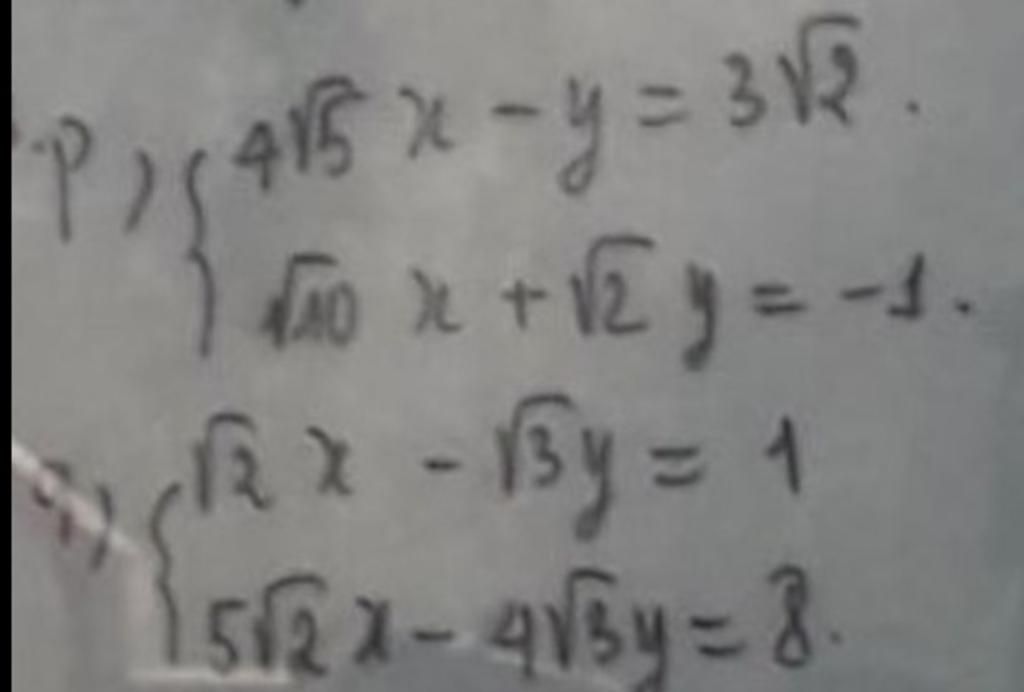 p) { 4√5 x - y = 3√2.
√10 x + √2 y = -1.
q) { √2 x - √3y = 1
5√2 x - 4√3y = 8.